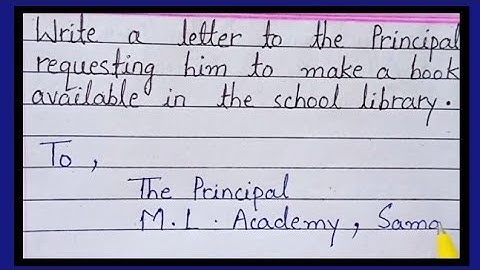 Write a letter to the Principal
requesting him to make a book
available in the school library.
To,
The Principal
M.L. Academy, Sama